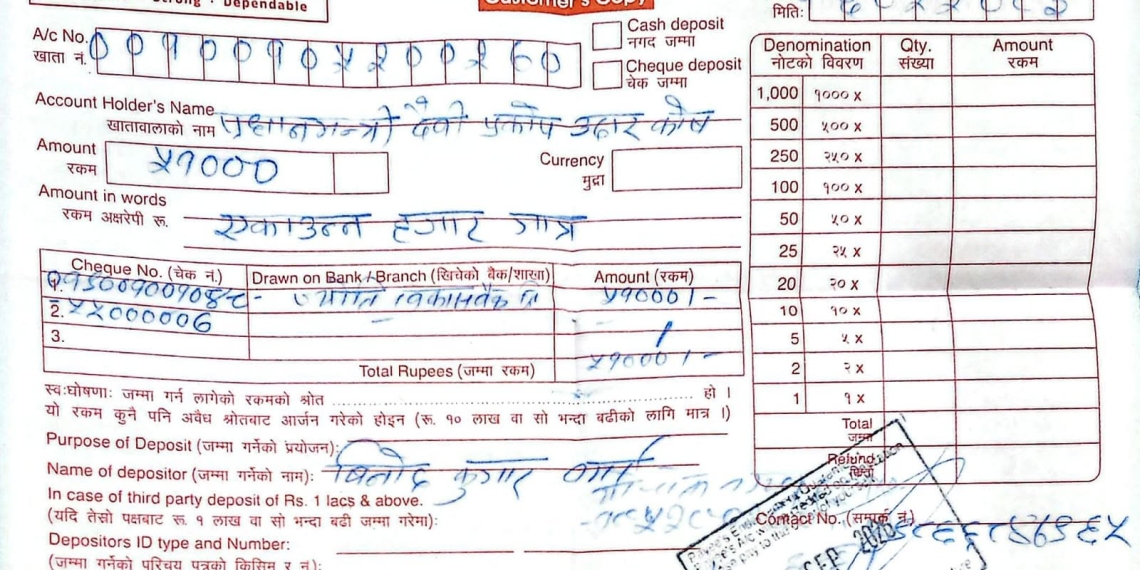 Strong · Dependable
Customer's Copy
मितिः
A/c No.
खाता नं.
Cash deposit
नगद जम्मा
Cheque deposit
चेक जम्मा
Account Holder's Name
खातावालाको नाम प्रधानमन्त्री दैवी प्रकोप उद्दार कोष
Amount
रकम ५१०००
Currency
मुद्रा
Amount in words
रकम अक्षरेपी रू. एकाउन्न हजार मात्र
Cheque No. (चेक नं.) Drawn on Bank / Branch (खिचेको बैंक/शाखा) Amount (रकम)
1. ५१०००।-
2. ५५००००००६
3.
Total Rupees (जम्मा रकम) ५१०००।-
स्व:घोषणाः जम्मा गर्न लागेको रकमको श्रोत ........ हो ।
यो रकम कुनै पनि अवैध श्रोतबाट आर्जन गरेको होइन (रू. १० लाख वा सो भन्दा बढीको लागि मात्र ।)
Purpose of Deposit (जम्मा गर्नेको प्रयोजन):
Name of depositor (जम्मा गर्नेको नाम): विनोद कुमार
In case of third party deposit of Rs. 1 lacs & above.
(यदि तेस्रो पक्षबाट रू. १ लाख वा सो भन्दा बढी जम्मा गरेमा):
Depositors ID type and Number:
(जम्मा गर्नेको परिचय पत्रको किसिम र नं):
Denomination Qty. Amount
नोटको विवरण संख्या रकम
1,000 १००० x
500 ५०० x
250 २५० x
100 १०० x
50 ५० x
25 २५ x
20 २० x
10 १० x
5 ५ x
2 २ x
1 १ x
Total
जम्मा
Refund
फिर्ता
Contact No. (सम्पर्क नं.)
SEP 2020